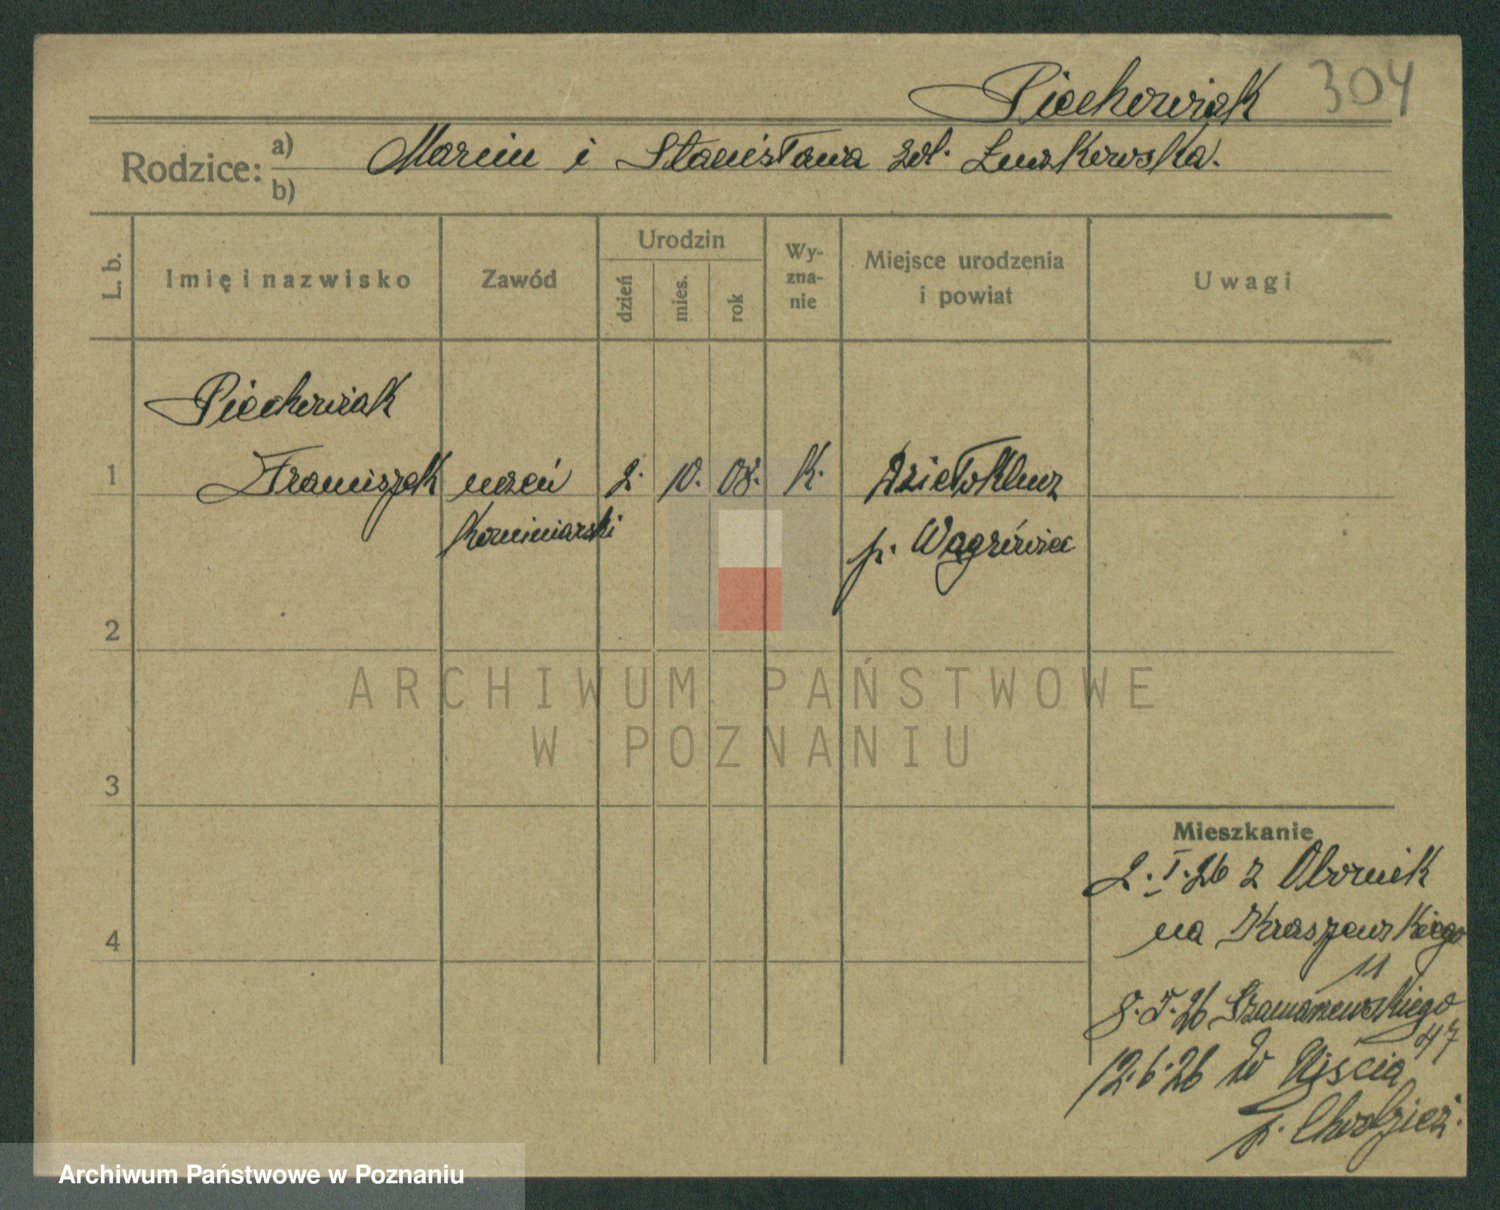 Piechowiak 304
Rodzice: a) Marcin i Stanisława zd. Luszkowska.
b)
L. b.
Imię i nazwisko
Zawód
Urodzin
dzień
mies.
rok
Wy-
zna-
nie
Miejsce urodzenia
i powiat
Uwagi
Piechowiak
1 Franciszek uczeń 2. 10. 08. K. Dziekłucz
kominiarski p. Wągrówiec
2
ARCHIWUM PAŃSTWOWE
W POZNANIU
3
Mieszkanie
2. I. 26 z Obornik
na Kraszewskiego
11
4
8. I. 26 Szamarzewskiego
47
12. 6. 26 do Ujścia
p. Chodzież.
Archiwum Państwowe w Poznaniu